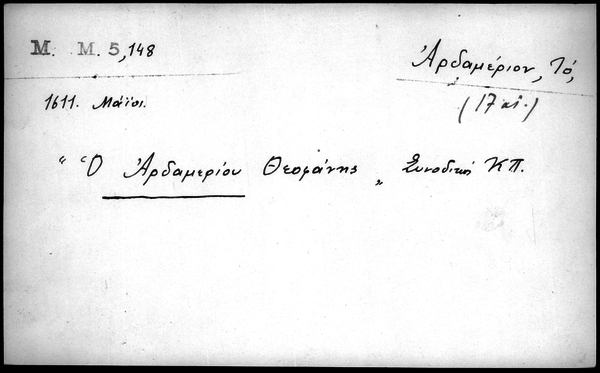 M. M. 5,148
Ἀρδαμέριον, Τό,
1611. Μάϊοι.
(17 αἰ.)
"Ὁ Ἀρδαμερίου Θεοφάνης„ Συνοδική ΚΠ.